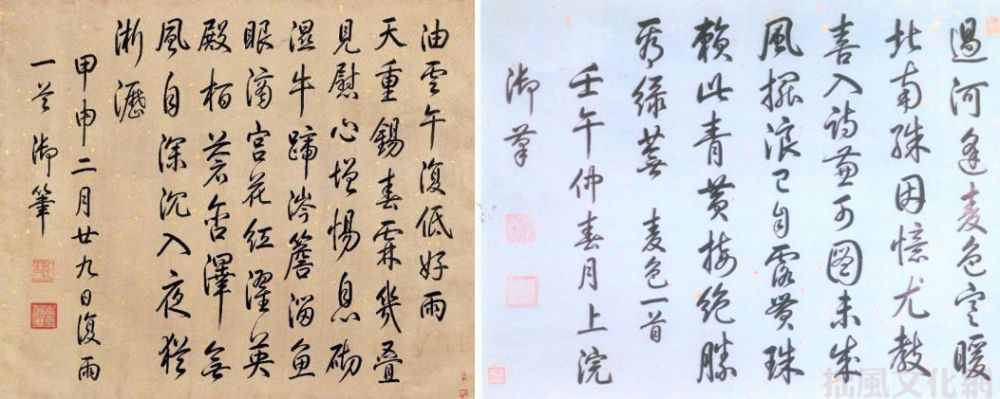 油雲午復低好雨
天重錫春霖幾疊
見慰心增惕息砌
濕牛蹄涔簷溜魚
眼滴宮花紅濯英
殿柏蒼含澤無
風自深沉入夜猶
淅瀝
甲申二月廿九日復雨
一首 御筆
過河逢麥色寒暖
北南殊因憶尤教
喜入詩可圖未成
風擺浪已自露貫珠
賴此青黃接絕勝
看綠蕪 麥色一首
壬午仲春月上浣
御筆
拙風文化網